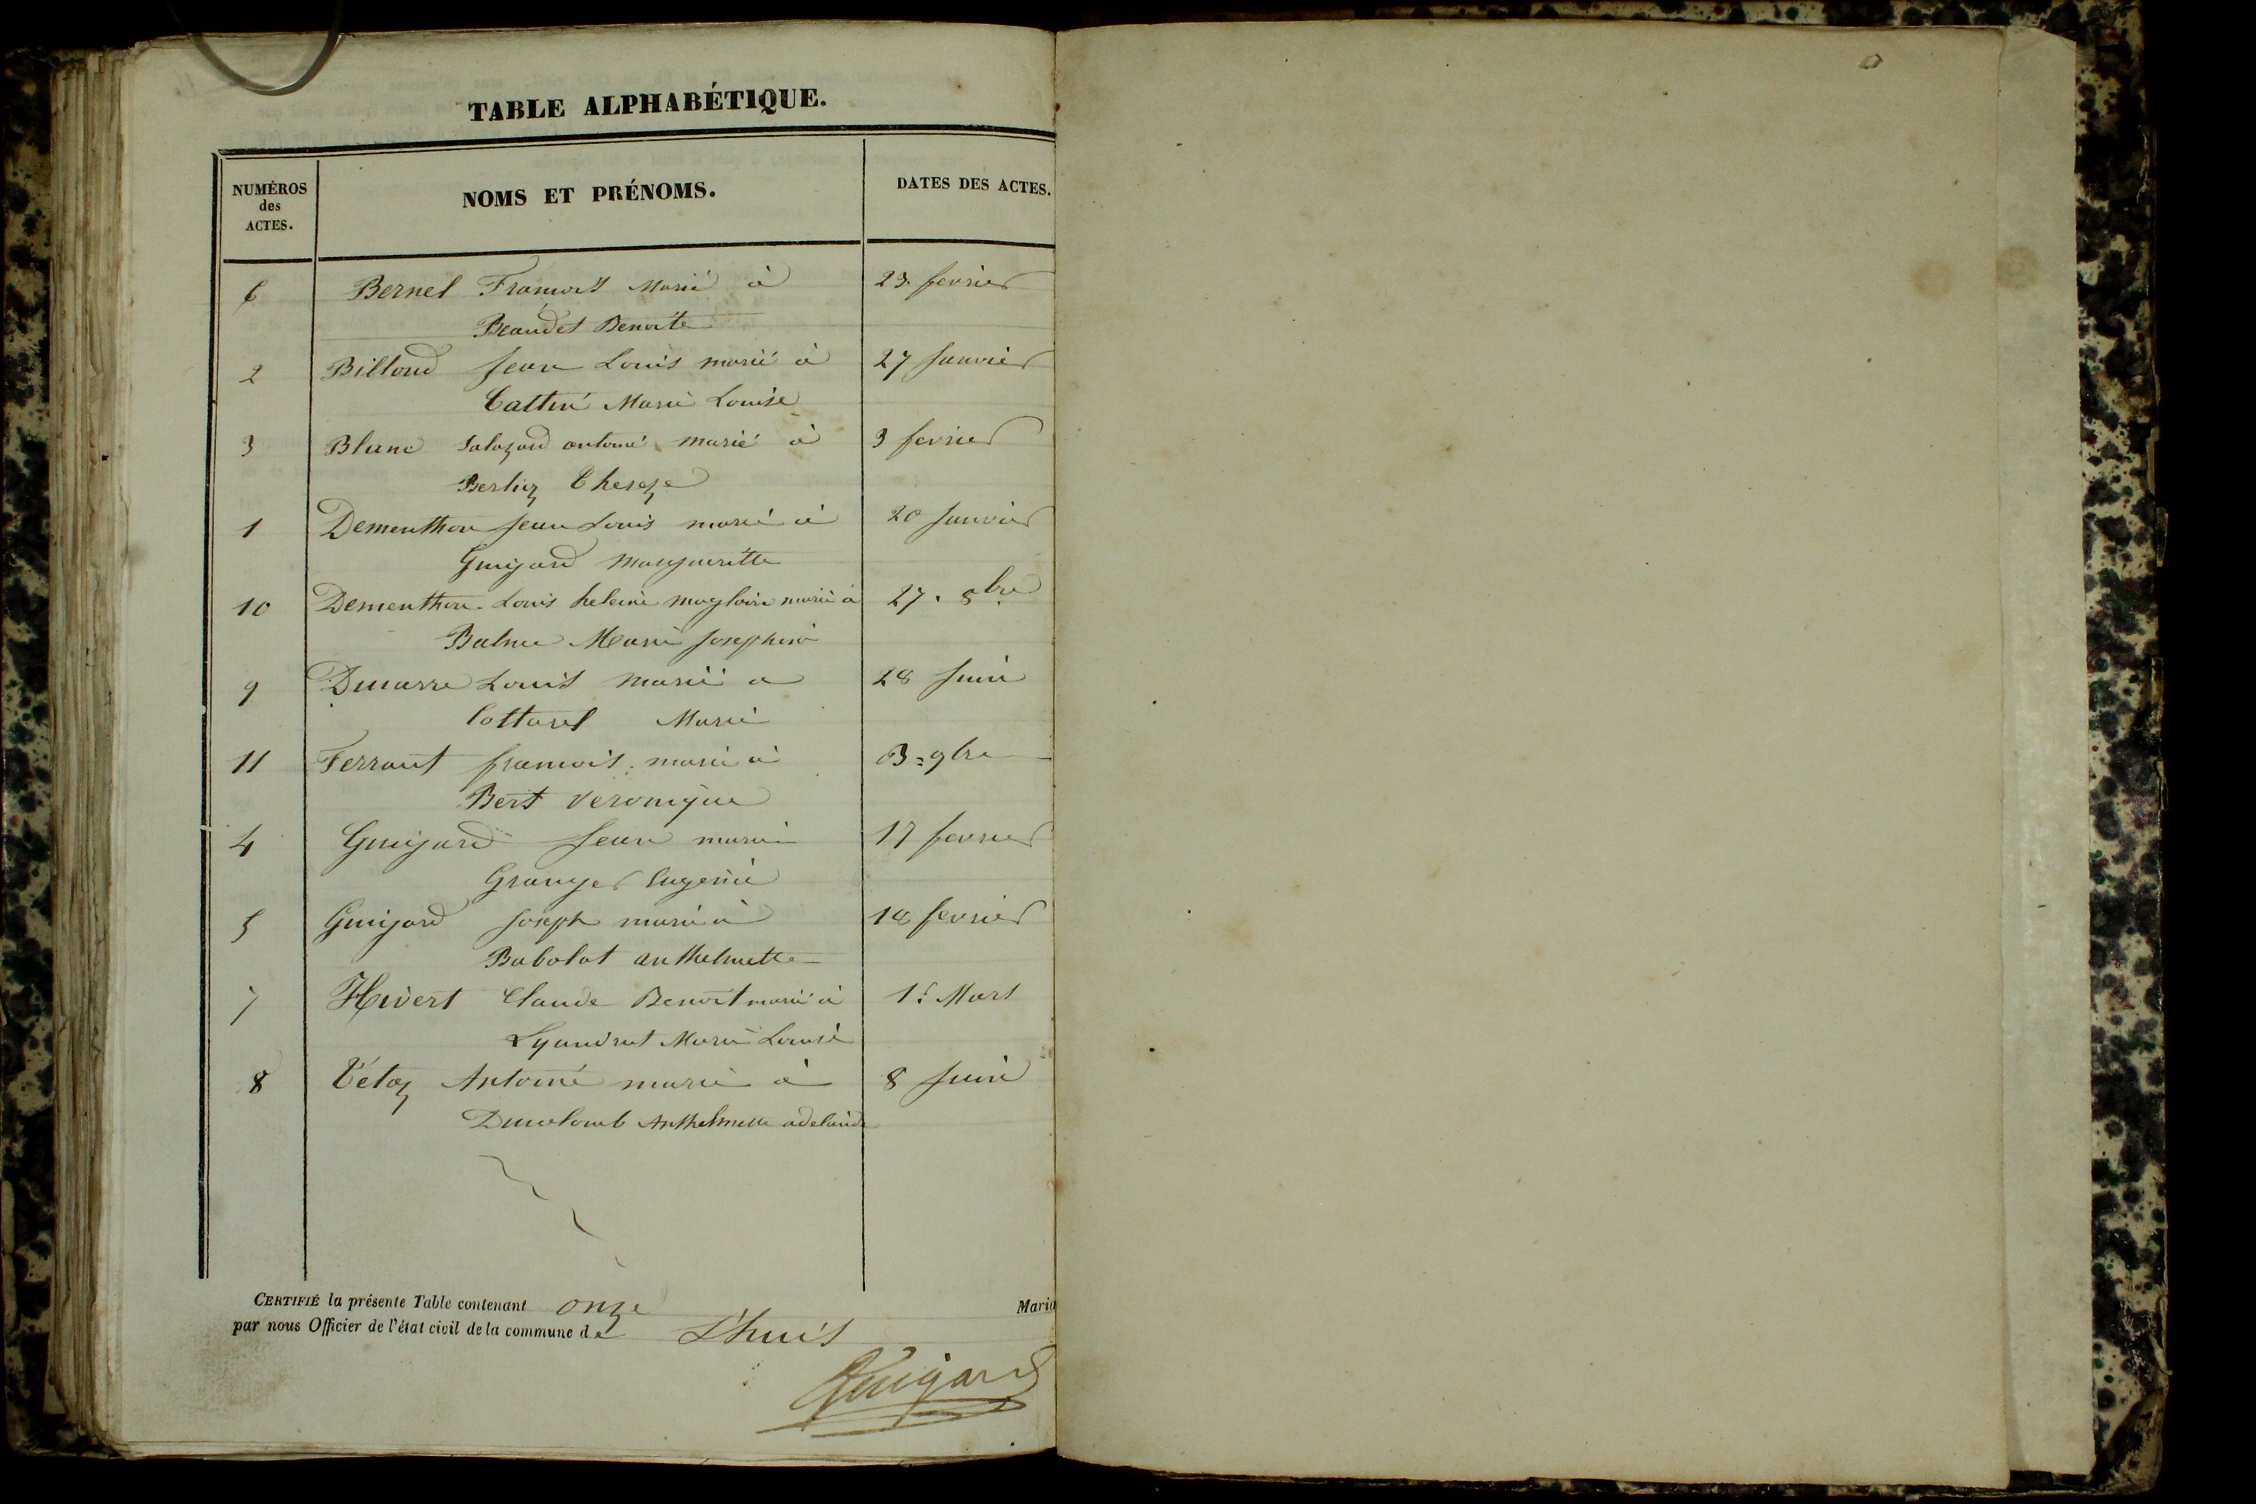 TABLE ALPHABÉTIQUE.
NUMÉROS des ACTES. NOMS ET PRÉNOMS. DATES DES ACTES.
6 Bernel François Marié à 23 fevrier
Beaudet Benoite
2 Billoud Jean Louis marié à 27 Janvier
Cattin Marie Louise
3 Blanc Salazard antoine marié à 3 fevrier
Berlioz Thereze
1 Dementhon Jean Louis marié à 20 Janvier
Guigard Margueritte
10 Dementhon Louis heleine magloire marié à 27. 8bre
Balme Marie Josephine
9 Ducarre Louis Marié a 28 Juin
Cottarel Marie
11 Ferrant francois marié à 3 = 9bre
Bert Veronique
4 Guigard Jean marié 17 fevrier
Granger Eugenie
5 Guigard Joseph marié à 18 fevrier
Babolat anthelmette
7 Hivert Claude Benoit marié à 1r Mars
Lyaudrat Marie Louise
8 Tétaz Antoine marié à 8 Juin
Ducolomb Anthelmette adelaide
CERTIFIÉ la présente Table contenant onze Maria
par nous Officier de l'état civil de la commune de L'huis
Guigard